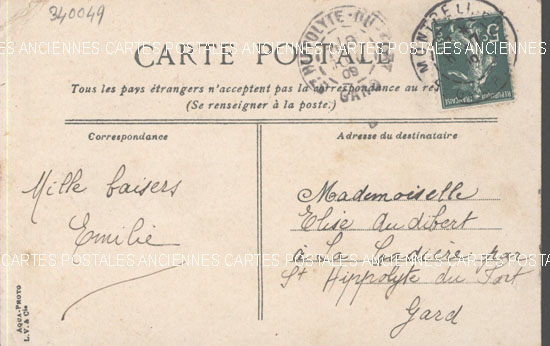 340049
CARTE POSTALE
Tous les pays étrangers n'acceptent pas la correspondance au
(Se renseigner à la poste.)
Correspondance
Mille baisers
Emilie
Adresse du destinataire
Mademoiselle
Elise Audibert
à La
St Hippolyte du Fort
Gard
AQUA-PHOTO
L.V. & Cie
ST HIPPOLYTE-DU-FORT
09
GARD
5
CARTES POSTALES ANCIENNES CARTES POSTALES ANCIENNES CARTES POSTALES
CARTES POSTALES ANCIENNES CARTES POSTALES ANCIENNES CARTES POSTALES